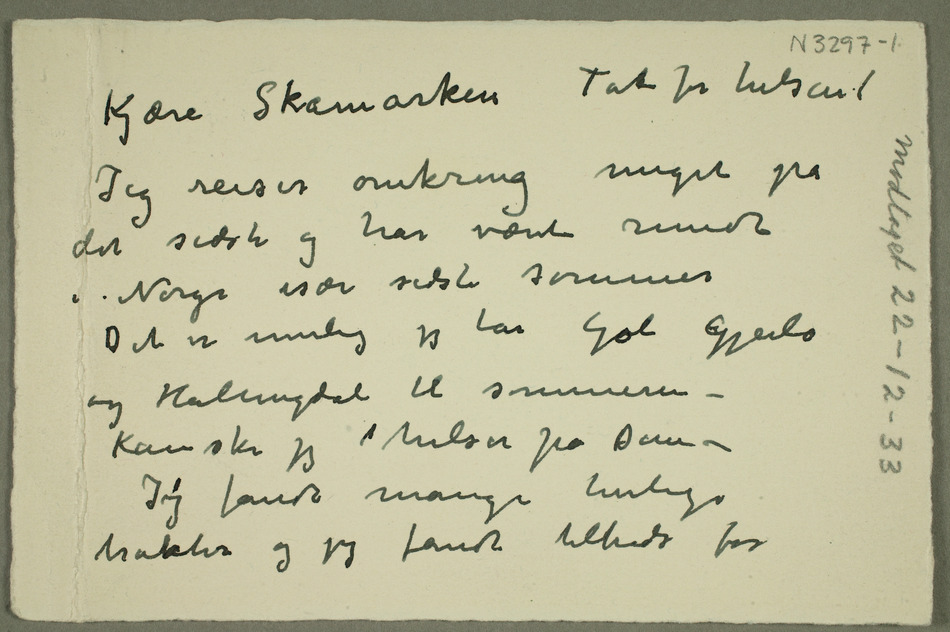 N3297-1.
Kjære Skamarken Tak for hilsen!
Jeg reiser omkring meget på
det sidste og har været rundt
i Norge især sidste sommer
Det er mulig jeg tar Gol Gjeilo
og Hallingdal til sommeren –
Kanske jeg hilser på Dem –
Jeg fandt mange herlige
trakter og jeg fandt tilbede for
modtaget 22-12-33